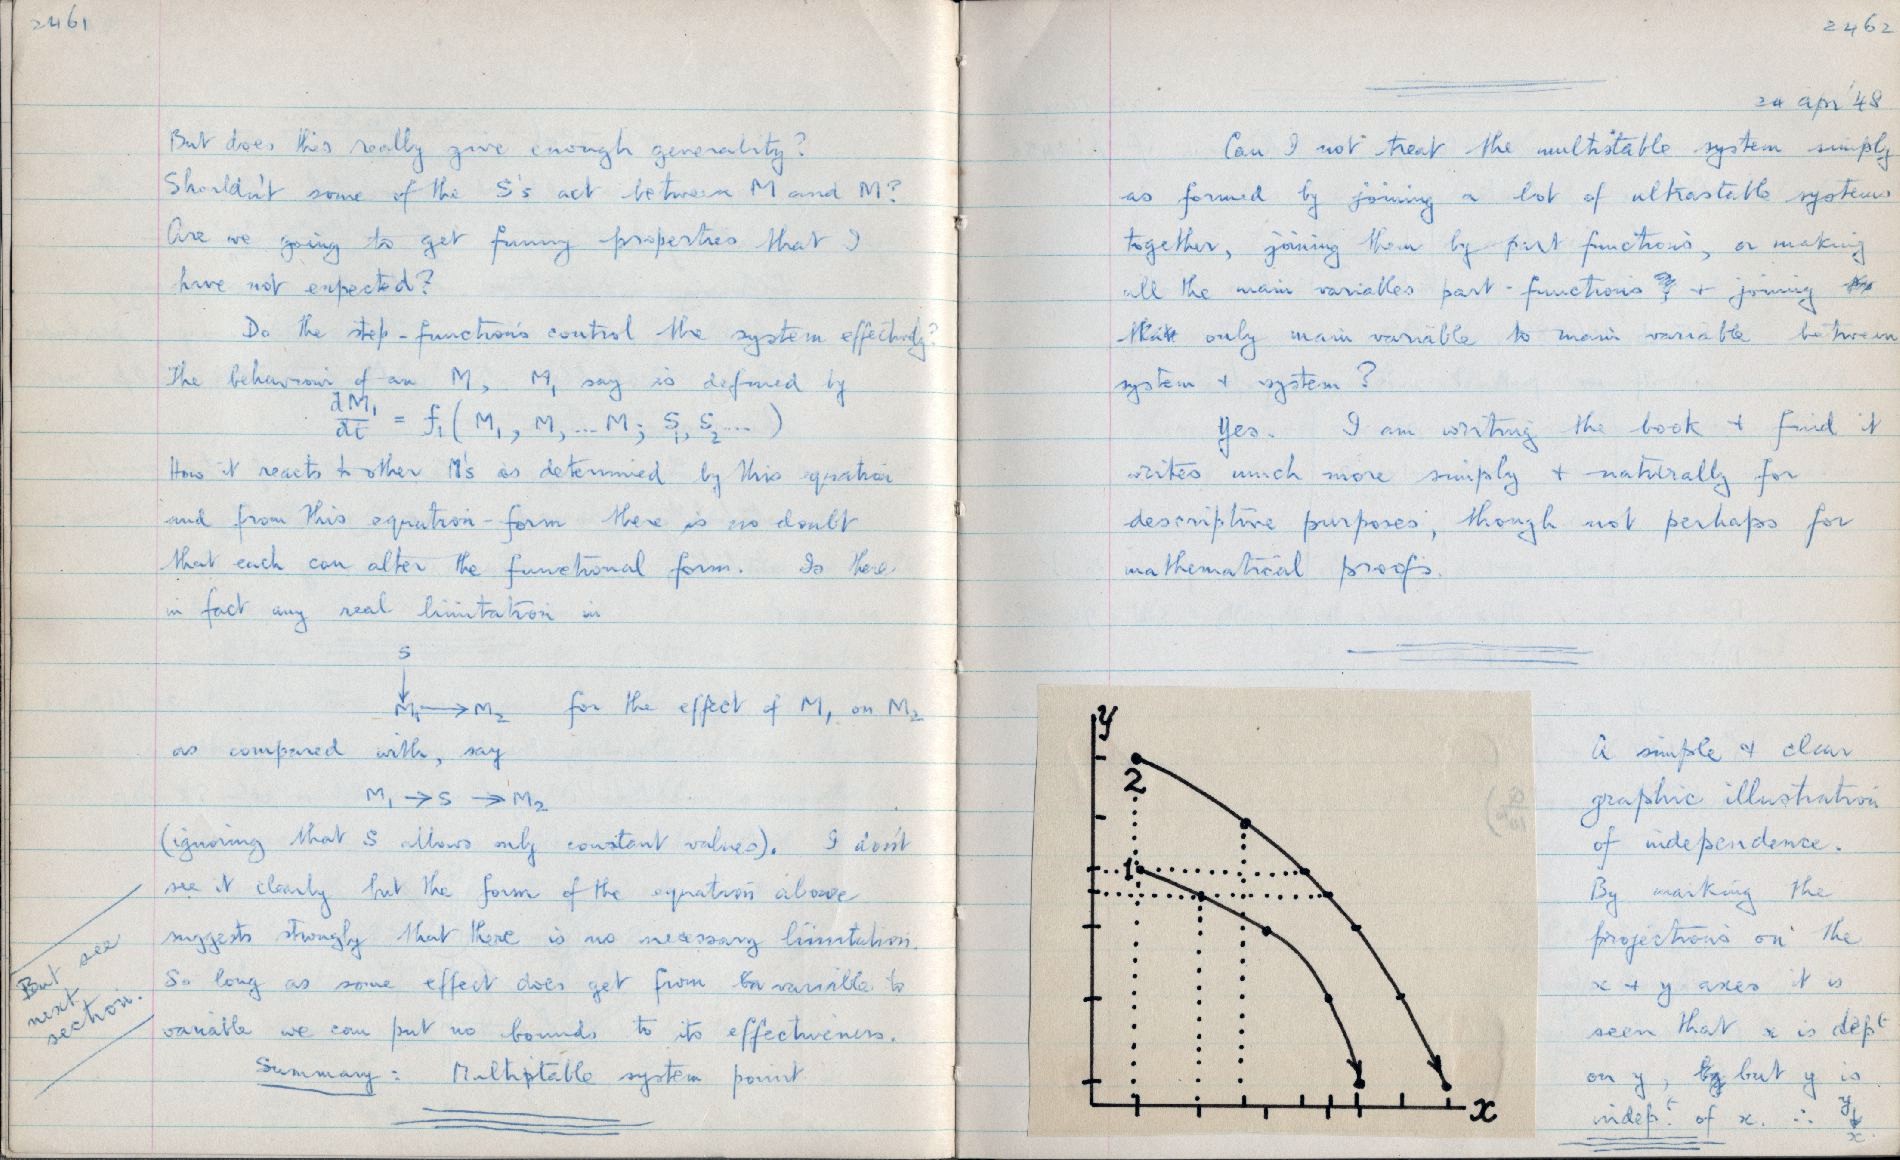 2461
But does this really give enough generality?
Shouldn't some of the S's act between M and M?
Are we going to get funny properties that I
have not expected?
Do the step-functions control the system effectively?
The behaviour of an M, M₁ say is defined by
dM₁/dt = f₁( M₁, M, ... M; S₁, S₂ ... )
How it reacts to other M's is determined by this equation
and from this equation-form there is no doubt
that each can alter the functional form. Is there
in fact any real limitation in
S
↓
M₁ → M₂ for the effect of M₁ on M₂
as compared with, say
M₁ → S → M₂
(ignoring that S allows only constant values). I don't
see it clearly but the form of the equation above
suggests strongly that there is no necessary limitation.
So long as some effect does get from variable to
variable we can put no bounds to its effectiveness.
But see
next
section.
Summary: Multiptable system point
2462
24 Apr '48
Can I not treat the multistable system simply
as formed by joining a lot of ultrastable systems
together, joining them by part functions, or making
all the main variables part-functions + joining
that only main variable to main variable between
system + system?
Yes. I am writing the book + find it
writes much more simply + naturally for
descriptive purposes, though not perhaps for
mathematical proofs.
y
2
1
x
A simple & clear
graphic illustration
of independence.
By marking the
projections on the
x + y axes it is
seen that x is depᵗ
on y, but y is
indep.ᵗ of x. ∴ y
↓
x.